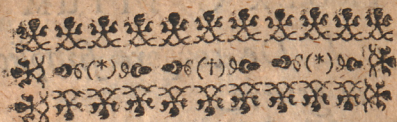 (*) (†) (*)